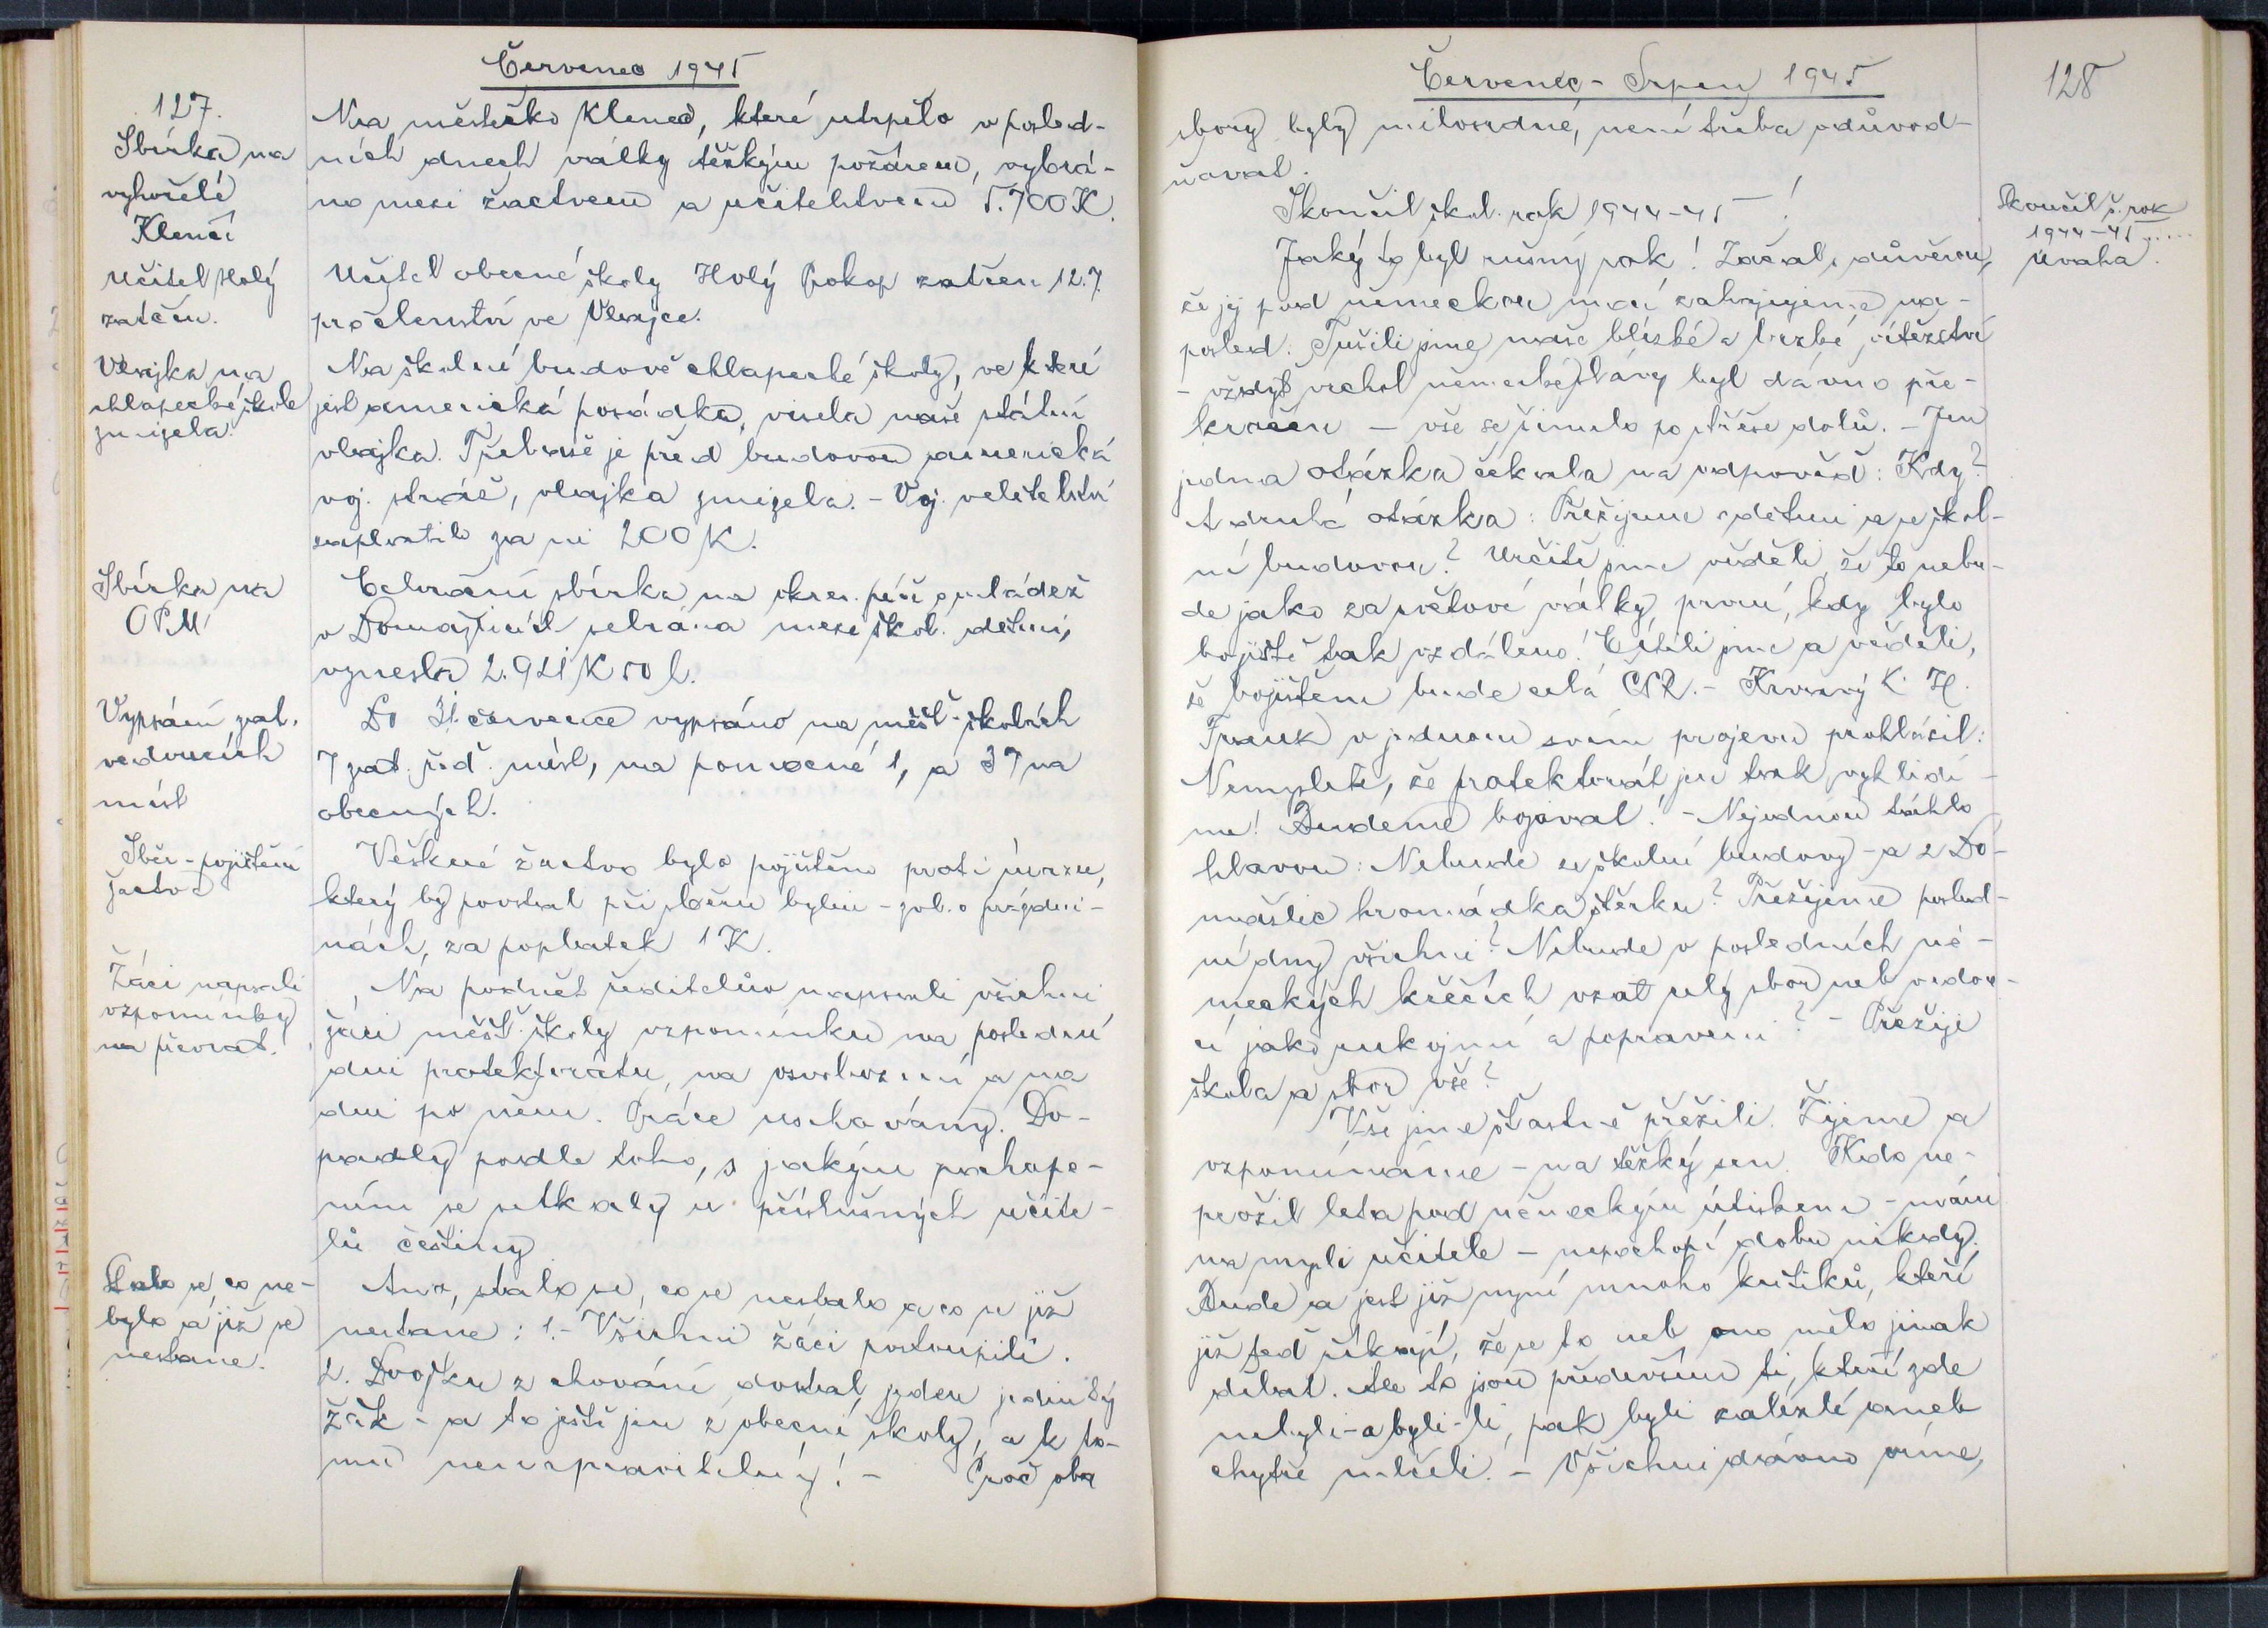 127.
Červenec 1945
Sbírka na
vyhořelé
Klenčí
Na městečko Klenčí, které utrpělo v posled-
ních dnech války těžkým požárem, vybrá-
no mezi žactvem a učitelstvem 5.700 K.
Učitel Holý
zatčen.
Učitel obecné školy Holý Prokop zatčen 12.7.
pro členství ve Vlajce.
Vlajka na
chlapecké škole
zmizela.
Na školní budově chlapecké školy, ve které
jest americká posádka, visela naše státní
vlajka. Třebaže je před budovou americká
voj. stráž, vlajka zmizela. - Voj. velitelství
zaplatilo za ni 200 K.
Sbírka na
OPM
Celoroční sbírka na okres. péči o mládež
v Domažlicích sebraná mezi škol. dětmi,
vynesla 2.921 K 50 h.
Vypsání zat.
vedoucích
míst
Do 31. července vypsáno na měšť. školách
7 zat. řed. míst, na pomocné 1, a 37 na
obecných.
Sběr - pojištění
žactva
Veškeré žactvo bylo pojištěno proti úrazu,
který by povstal při sběru bylin - zvl. o prázdni-
nách, za poplatek 1 K.
Žáci napsali
vzpomínky
na převrat.
Na podnět ředitelův napsali všichni
žáci měšť. školy vzpomínku na poslední
dni protektorátu, na osvobození a na
dni po něm. Práce uschovány. Do-
padly podle toho, s jakým pochope-
ním se setkaly u příslušných učite-
lů češtiny.
Stalo se, co ne-
bylo a již se
nestane.
Ano, stalo se, co se nestalo a co se již
nestane: 1.- Všichni žáci postoupili.
2. Dvojku z chování dostal jeden jedinký
žák - a to ještě jen z obecné školy, a k to-
mu nenapravitelný! - Proč oba
Červenec - Srpen 1945
128
sbory byly milosrdné, není třeba odůvod-
ňovat.
Skončil š. rok
1944-45 .....
Úvaha.
Skončil škol. rok 1944-45 !
Jaký to byl rušný rok! Začal s důvěrou,
že jej pod německou mocí zahajujeme na-
posled. Tušili jsme naše blízké a brzké vítězství
- vždyť vrchol německé slávy byl dávno pře-
kročen - vše se řinulo po střeše dolů. - Jen
jedna otázka čekala na odpověď: Kdy?
A druhá otázka: Přežijeme s dětmi a se škol-
ní budovou? Určitě jsme věděli, že to nebu-
de jako za světové války první, kdy bylo
bojiště tak vzdáleno! Cítili jsme a věděli,
že bojištěm bude celá ČSR. - Krvavý K. H.
Frank v jednom svém projevu prohlásil:
Nemyslete, že protektorát jen tak vyklidí-
me! Budeme bojovat! - Nejednou táhlo
hlavou: Nebude ze školní budovy - a z Do-
mažlic hromádka štěrku? Přežijeme posled-
ní dny všichni? Nebude v posledních ně-
meckých křečích vzat celý sbor neb vedou-
cí jako rukojmí a popraveni? - Přežije
škola a sbor vše?
Vše jsme šťastně přežili. Žijeme a
vzpomínáme - na těžký sen. Kdo ne-
prožil léta pod německým útiskem - mám
na mysli učitele - nepochopí dobu nikdy.
Bude a jest již nyní mnoho kritiků, kteří
již teď říkají, že se to neb ono mělo jinak
dělat. Ale to jsou především ti, kteří zde
nebyli - a byli-li, pak byli zalezlí aneb
chytře mlčeli. - Všichni dávno víme,